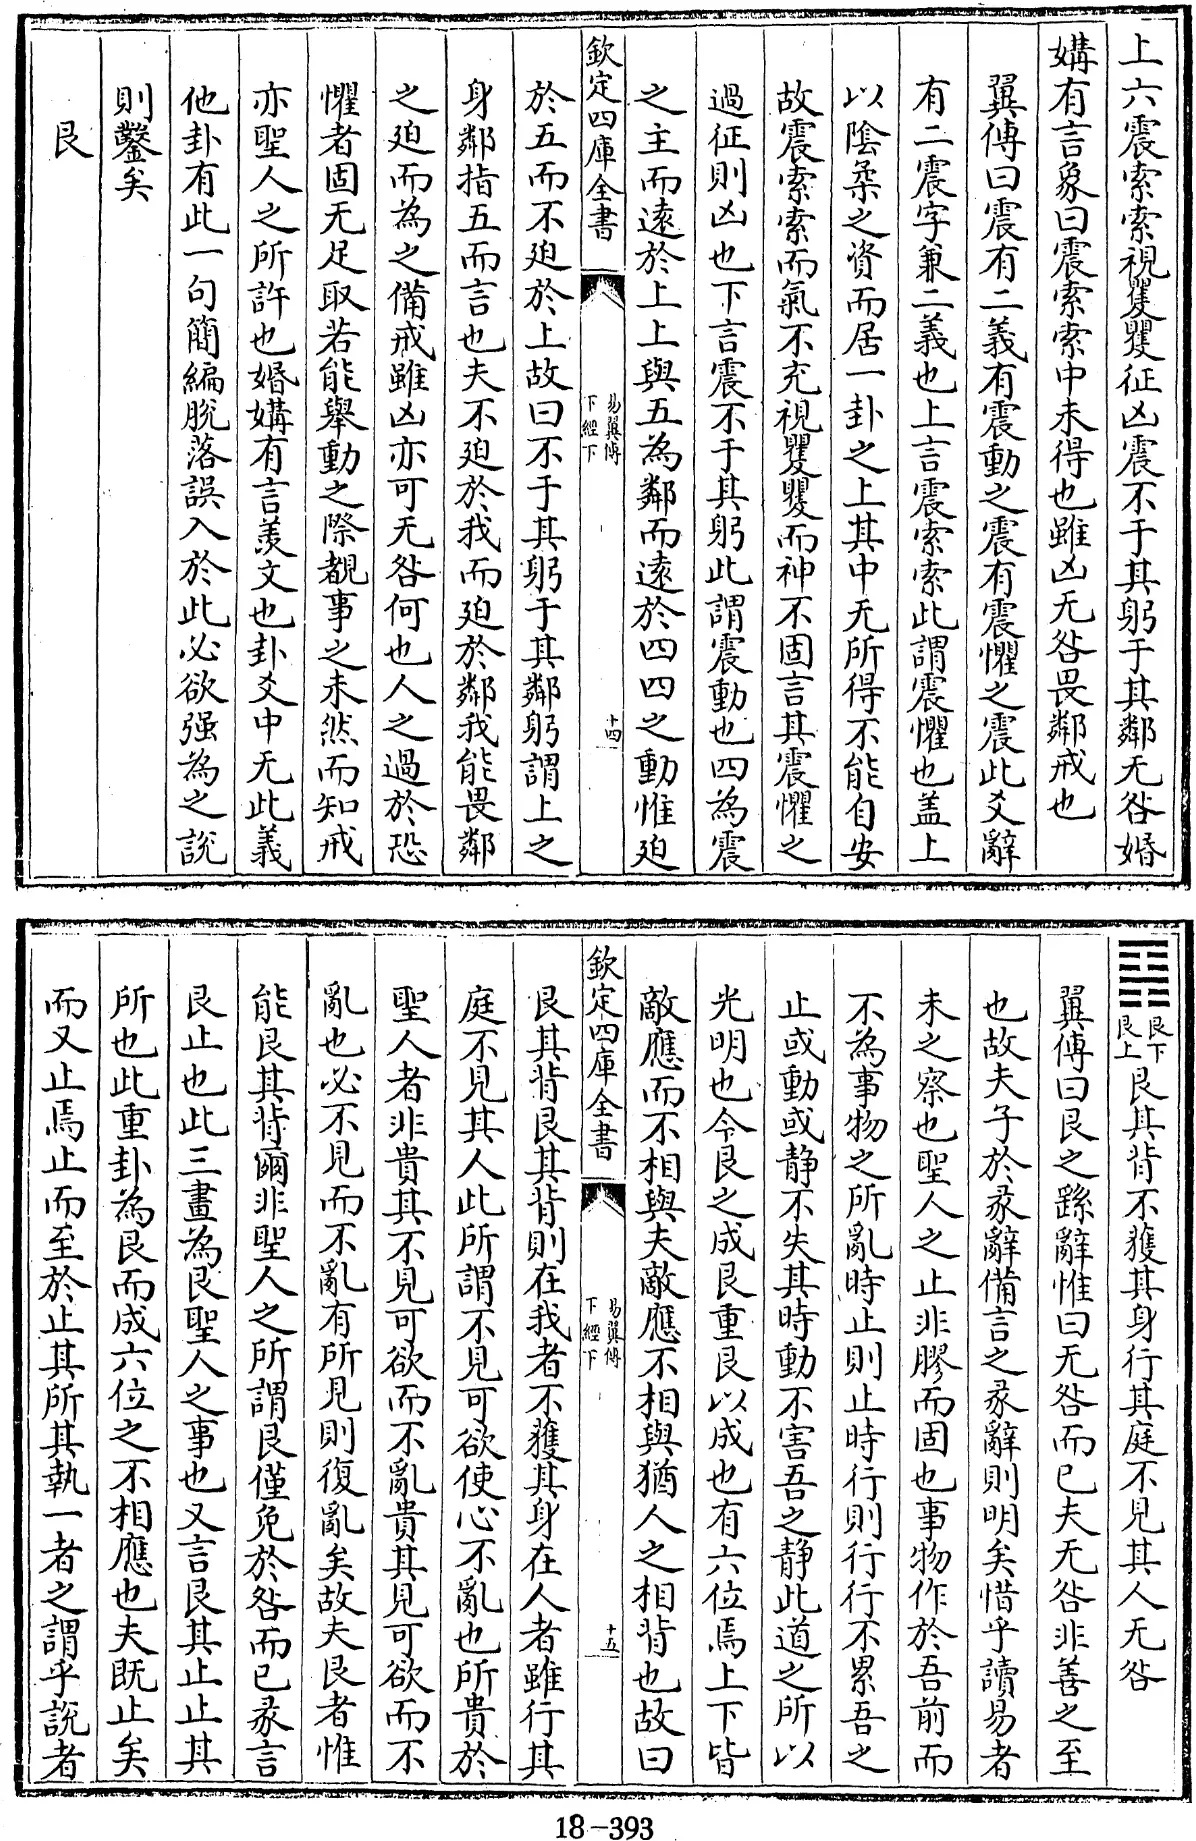 上六震索索視矍矍征凶震不于其躬于其鄰无咎婚
媾有言象曰震索索中未得也雖凶无咎畏鄰戒也
翼傳曰震有二義有震動之震有震懼之震此爻辭
有二震字兼二義也上言震索索此謂震懼也盖上
以陰柔之資而居一卦之上其中无所得不能自安
故震索索而氣不充視矍矍而神不固言其震懼之
過征則凶也下言震不于其躬此謂震動也四為震
之主而遠於上上與五為鄰而遠於四四之動惟廹
欽定四庫全書
易翼傳
下經下
十四
於五而不廹於上故曰不于其躬于其鄰躬謂上之
身鄰指五而言也夫不廹於我而廹於鄰我能畏鄰
之廹而為之備戒雖凶亦可无咎何也人之過於恐
懼者固无足取若能舉動之際覩事之未然而知戒
亦聖人之所許也婚媾有言羡文也卦爻中无此義
他卦有此一句簡編脫落誤入於此必欲强為之說
則鑿矣
艮
䷳
艮下
艮上
艮其背不獲其身行其庭不見其人无咎
翼傳曰艮之繇辭惟曰无咎而已夫无咎非善之至
也故夫子於彖辭備言之彖辭則明矣惜乎讀易者
未之察也聖人之止非膠而固也事物作於吾前而
不為事物之所亂時止則止時行則行行不累吾之
止或動或静不失其時動不害吾之静此道之所以
光明也令艮之成艮重艮以成也有六位焉上下皆
敵應而不相與夫敵應不相與猶人之相背也故曰
欽定四庫全書
易翼傳
下經下
十五
艮其背艮其背則在我者不獲其身在人者雖行其
庭不見其人此所謂不見可欲使心不亂也所貴於
聖人者非貴其不見可欲而不亂貴其見可欲而不
亂也必不見而不亂有所見則復亂矣故夫艮者惟
能艮其背爾非聖人之所謂艮僅免於咎而已彖言
艮止也此三畫為艮聖人之事也又言艮其止止其
所也此重卦為艮而成六位之不相應也夫既止矣
而又止焉止而至於止其所其執一者之謂乎說者
18-393